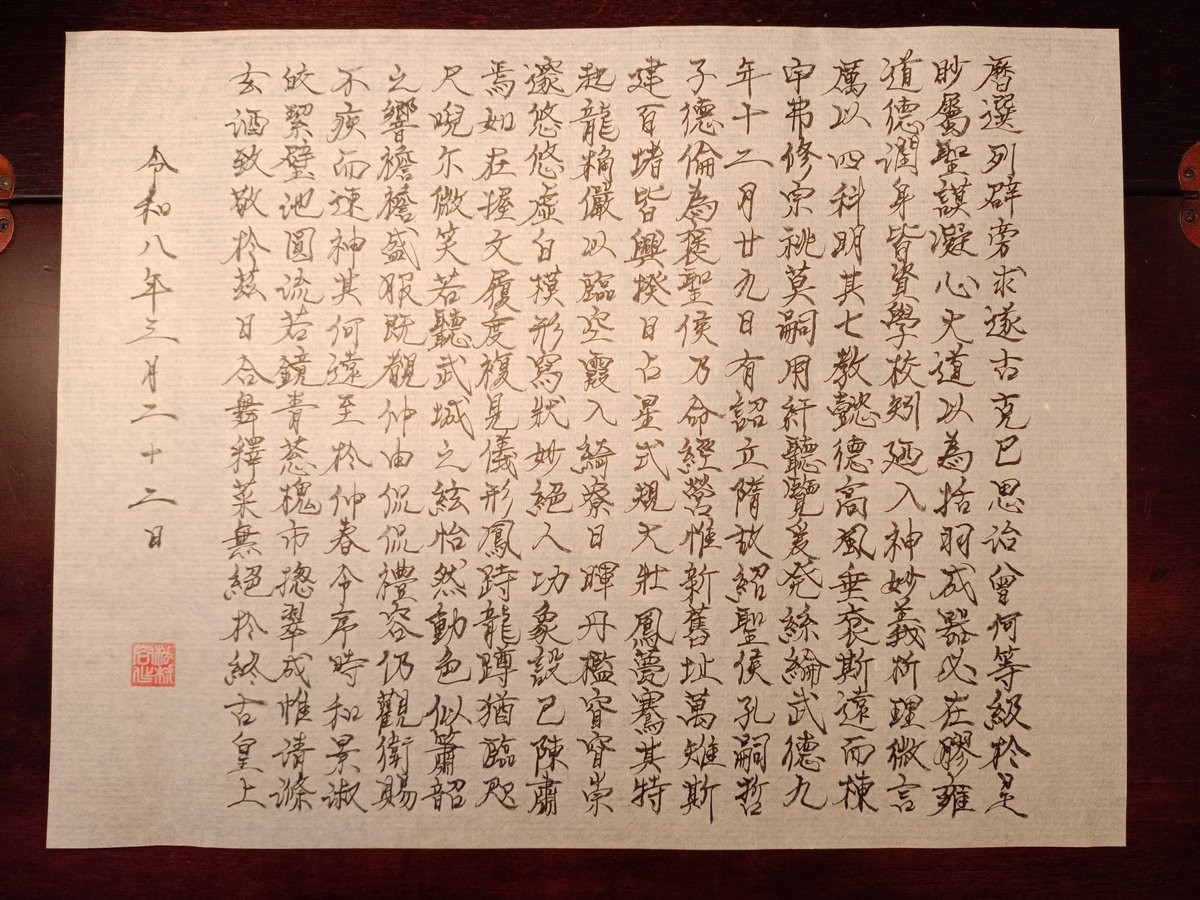 暦選列辟旁求遂古克己思治曾何等級於是
眇屬聖謨凝心大道以為括羽成器必在膠雍
道德潤身皆資學校矧廼入神妙義析理微言
厲以四科明其七教懿德高風垂裕斯遠而棟
宇弗修宗祧莫嗣用紆聽覽爰発絲綸武德九
年十二月廿九日有詔立隋故紹聖侯孔嗣悊
子德倫為褒聖侯乃命經營惟新舊址萬雉斯
建百堵皆興揆日占星式規大壯鳳甍騫其特
起龍桷儼以臨空霞入綺寮日暉丹檻窅窅崇
邃悠悠虛白模形寫狀妙絕人功象設已陳肅
焉如在握文履度複見儀形鳳跱龍蹲猶臨咫
尺睨尓微笑若聽武城之絃怡然動色似簫韶
之響襜襜盛服既覩仲由侃侃禮容仍觀衛賜
不疾而速神其何遠至於仲春令序時和景淑
皎絜璧池圓流若鏡青葱槐市揔翠成帷請滌
玄酒致敬於茲日合舞釋菜無絕於終古皇上
令和八年三月二十二日